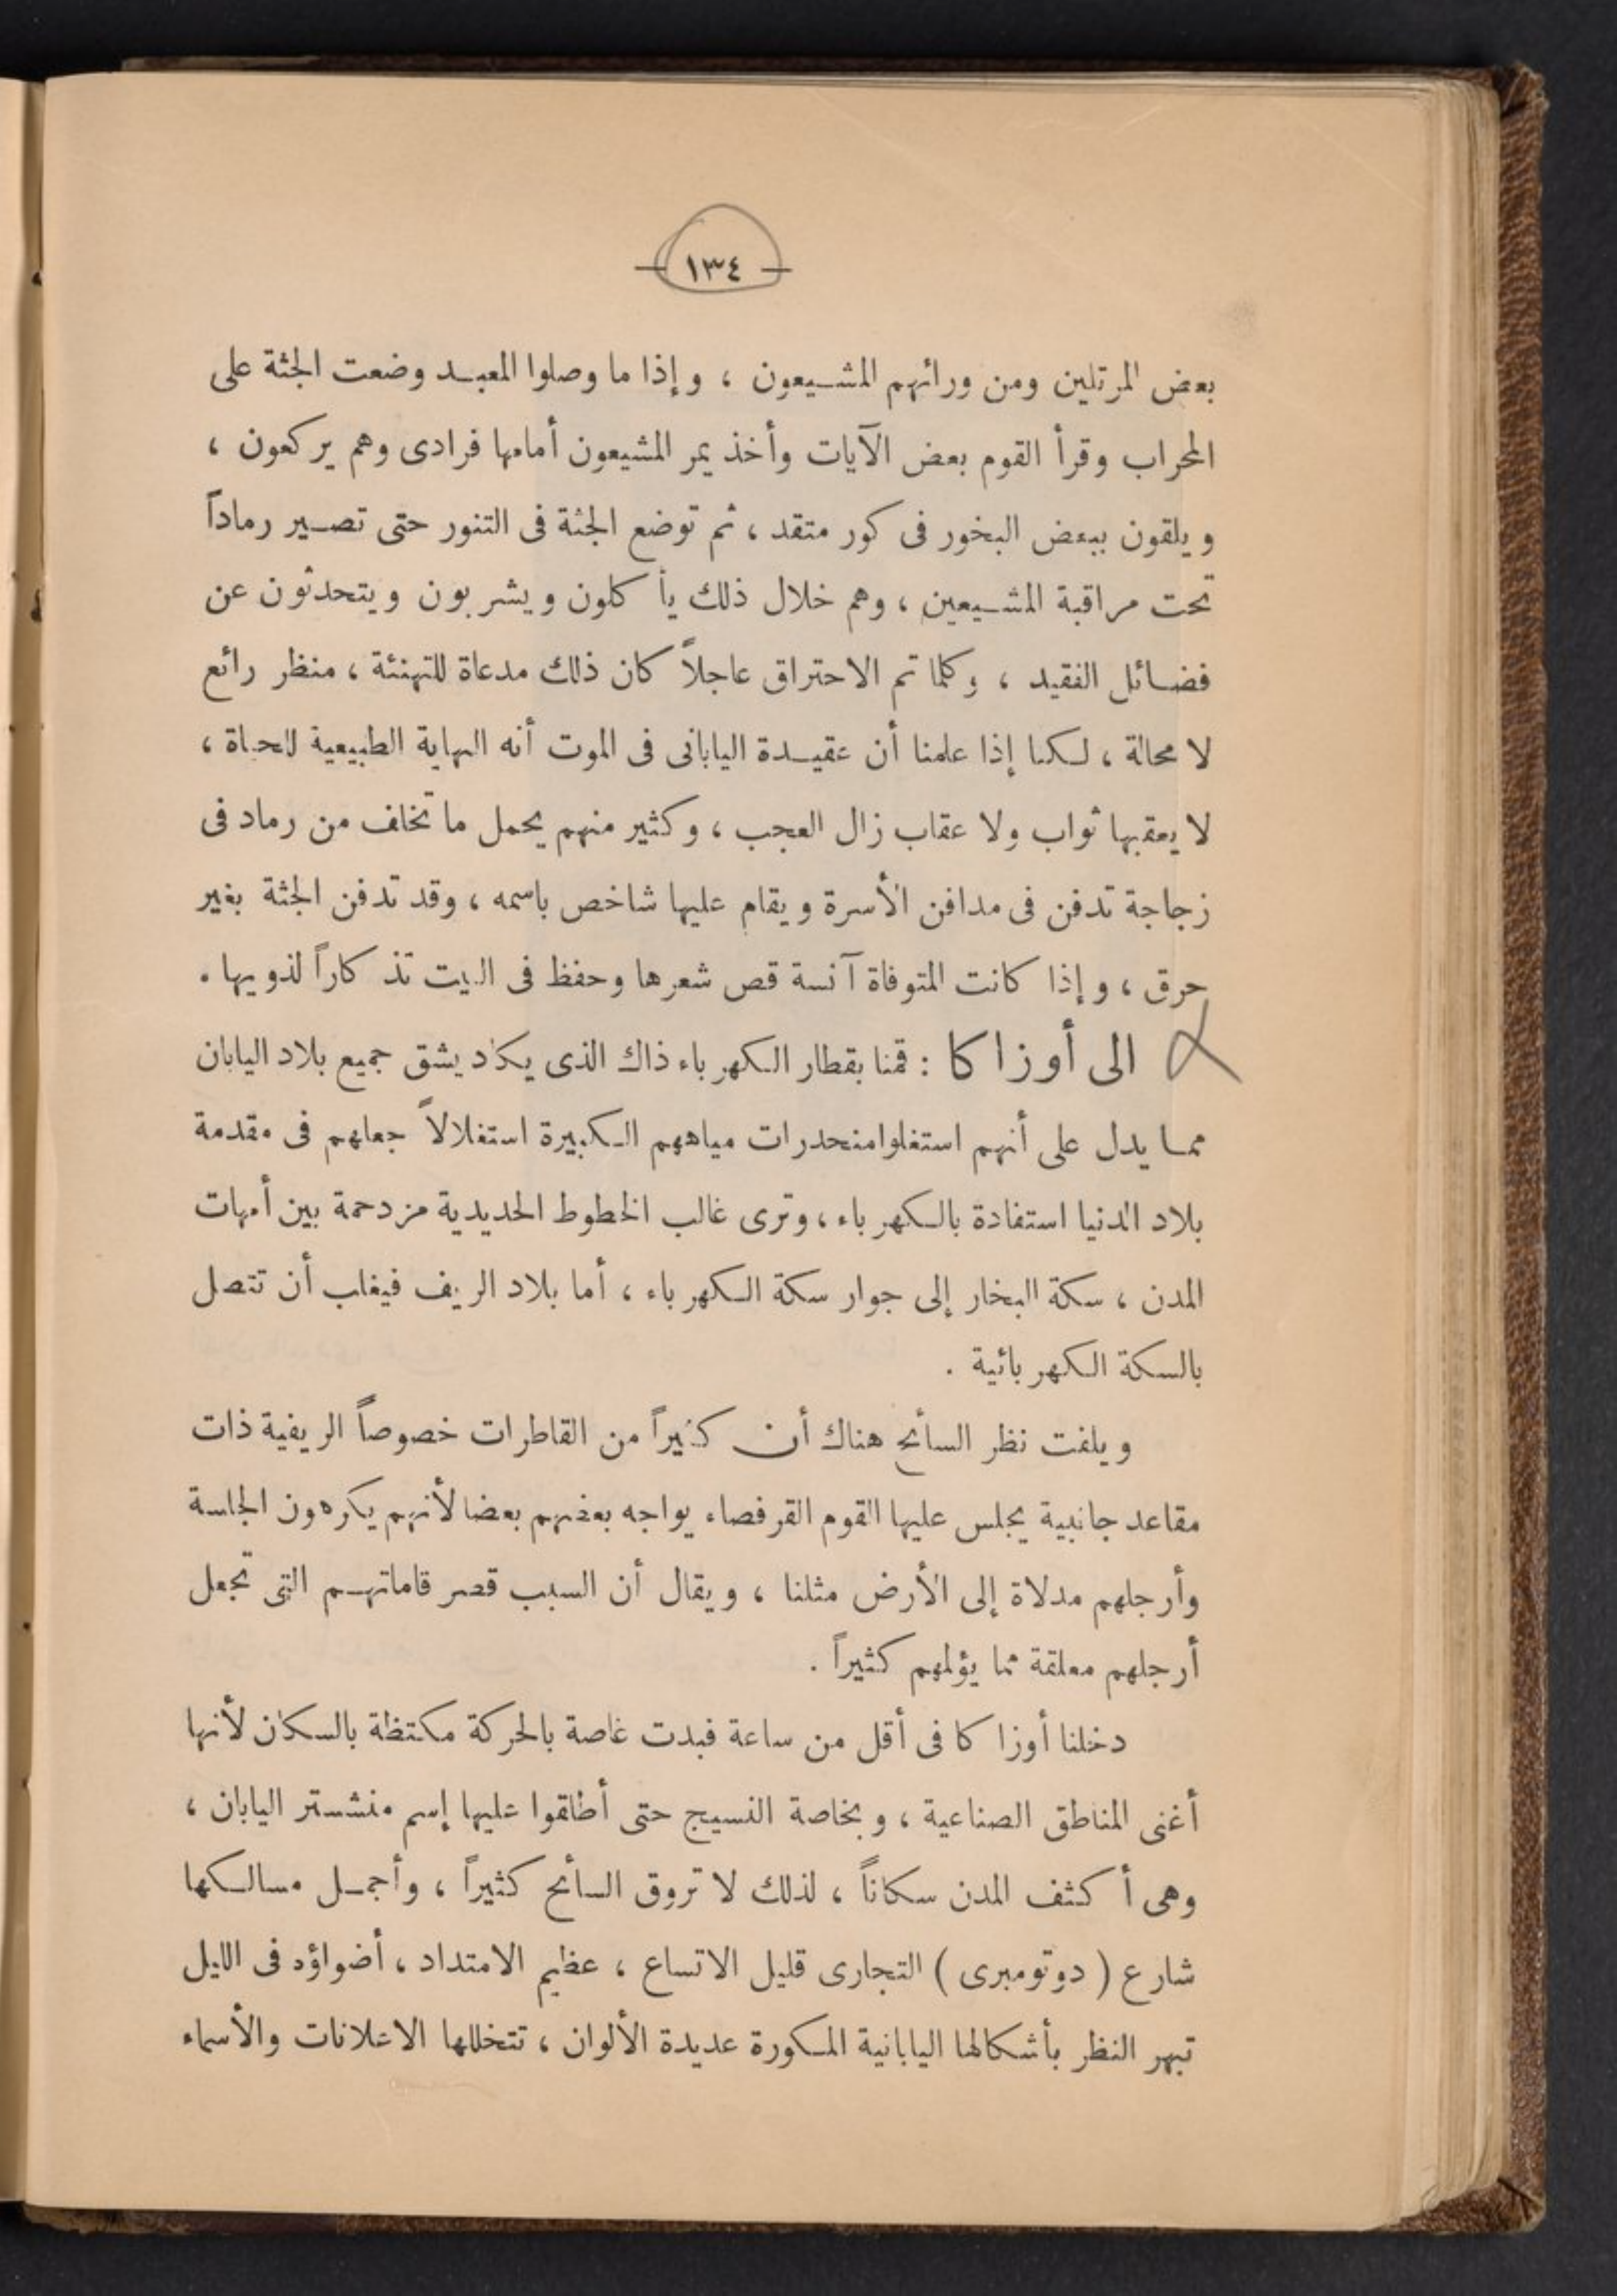 — ١٣٤ —
بعض المرتلين ومن ورائهم المشيعون ، وإذا ما وصلوا المعبد وضعت الجثة على
المحراب وقرأ القوم بعض الآيات وأخذ يمر المشيعون أمامها فرادى وهم يركعون ،
ويلقون ببعض البخور فى كور متقد ، ثم توضع الجثة فى التنور حتى تصير رماداً
تحت مراقبة المشيعين ، وهم خلال ذلك يأكلون ويشربون ويتحدثون عن
فضائل الفقيد ، وكلما تم الاحتراق عاجلاً كان ذلك مدعاة للتهنئة ، منظر رائع
لا محالة ، لكنا إذا علمنا أن عقيدة اليابانى فى الموت أنه النهاية الطبيعية للحياة ،
لا يعقبها ثواب ولا عقاب زال العجب ، وكثير منهم يحمل ما تخلف من رماد فى
زجاجة تدفن فى مدافن الأسرة ويقام عليها شاخص باسمه ، وقد تدفن الجثة بغير
حرق ، وإذا كانت المتوفاة آنسة قص شعرها وحفظ فى البيت تذكاراً لذويها .
الى أوزاكا : قمنا بقطار الكهرباء ذاك الذى يكاد يشق جميع بلاد اليابان
مما يدل على أنهم استغلوا منحدرات مياههم الكبيرة استغلالاً جعلهم فى مقدمة
بلاد الدنيا استفادة بالكهرباء ، وترى غالب الخطوط الحديدية مزدحمة بين أمهات
المدن ، سكة البخار إلى جوار سكة الكهرباء ، أما بلاد الريف فيغلب أن تتصل
بالسكة الكهربائية .
ويلفت نظر السائح هناك أن كثيراً من القاطرات خصوصاً الريفية ذات
مقاعد جانبية يجلس عليها القوم القرفصاء يواجه بعضهم بعضا لأنهم يكرهون الجلسة
وأرجلهم مدلاة إلى الأرض مثلنا ، ويقال أن السبب قصر قاماتهم التى تجعل
أرجلهم معلقة مما يؤلمهم كثيراً .
دخلنا أوزاكا فى أقل من ساعة فبدت غاصة بالحركة مكتظة بالسكان لأنها
أغنى المناطق الصناعية ، وبخاصة النسيج حتى أطلقوا عليها إسم منشستر اليابان ،
وهى أكثف المدن سكاناً ، لذلك لا تروق السائح كثيراً ، وأجمل مسالكها
شارع ( دوتومبرى ) التجارى قليل الاتساع ، عظيم الامتداد ، أضواؤه فى الليل
تبهر النظر بأشكالها اليابانية المكورة عديدة الألوان ، تتخللها الاعلانات والأسماء